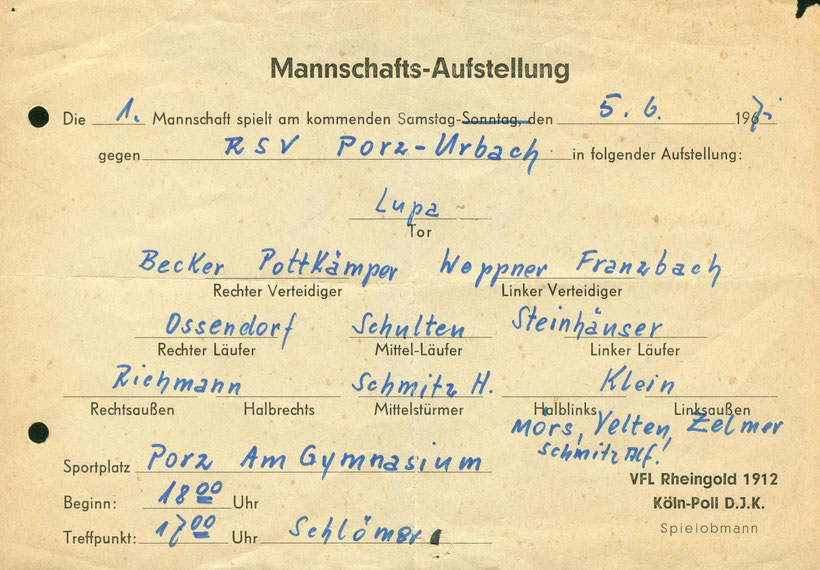 Mannschafts-Aufstellung
Die 1. Mannschaft spielt am kommenden Samstag-Sonntag, den 5. 6. 1967
gegen RSV Porz-Urbach in folgender Aufstellung:
Lupa
Tor
Becker Pottkämper Weppner Franzbach
Rechter Verteidiger Linker Verteidiger
Ossendorf Schulten Steinhäuser
Rechter Läufer Mittel-Läufer Linker Läufer
Richmann Schmitz H. Klein
Rechtsaußen Halbrechts Mittelstürmer Halblinks Linksaußen
Mörs, Velten, Zelmer
Schmitz Alf!
Sportplatz Porz Am Gymnasium
VFL Rheingold 1912
Beginn: 18 00 Uhr
Köln-Poll D.J.K.
Spielobmann
Treffpunkt: 17 00 Uhr Schlömer